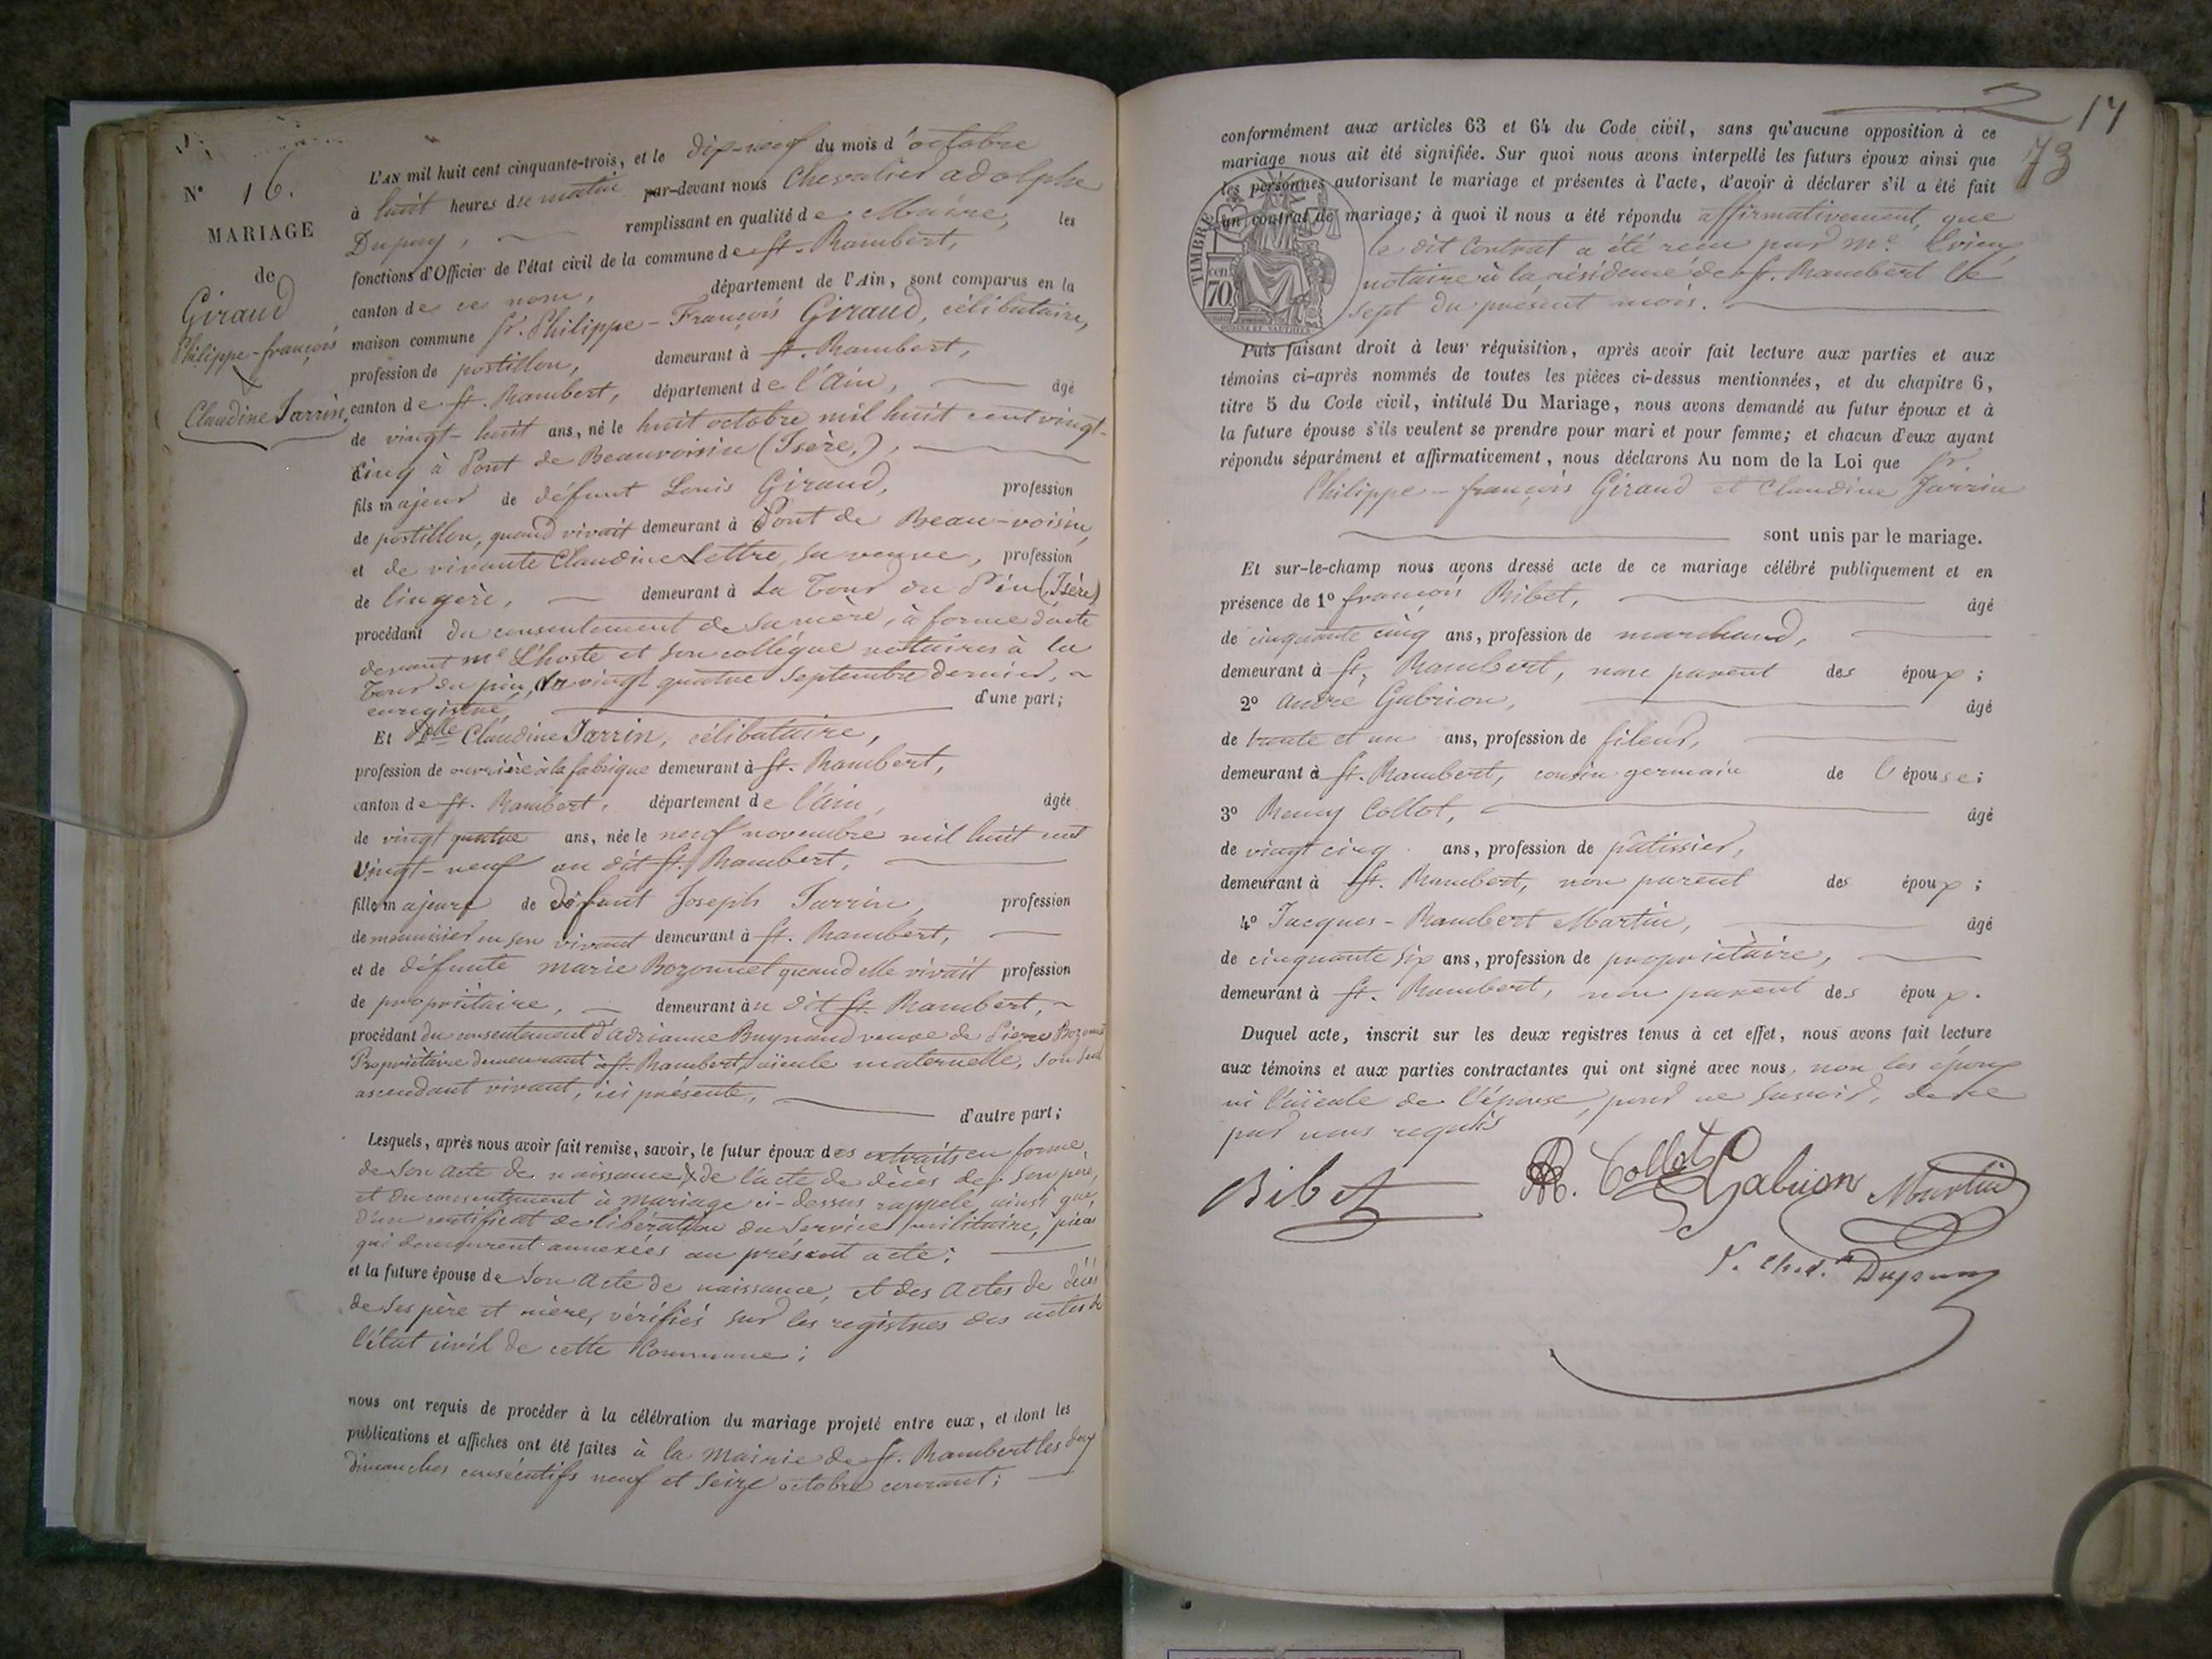 N° 16.
MARIAGE
de
Giraud
Philippe-françois
&
Claudine Jarrin.
L'AN mil huit cent cinquante-trois, et le dix-neuf du mois d'octobre
à huit heures du matin par-devant nous Chevalier adolphe
Dupuy, remplissant en qualité de Maire, les
fonctions d'Officier de l'état civil de la commune de St. Rambert,
canton de ce nom, département de l'Ain, sont comparus en la
maison commune Sr. Philippe-François Giraud, célibataire,
profession de postillon, demeurant à St. Rambert,
canton de St. Rambert, département de l'Ain, âgé
de vingt-huit ans, né le huit octobre mil huit cent vingt-
cinq à Pont de Beauvoisin (Isère),
fils majeur de défunt Louis Giraud, profession
de postillon, quand vivait demeurant à Pont de Beau-voisin,
et de vivante Claudine Lettre, sa veuve, profession
de lingère, demeurant à La Tour du Pin (Isère)
procédant du consentement de sa mère, à forme d'acte
devant me L'hoste et son collègue notaires à la
Tour du pin, le vingt quatre Septembre dernier,
enregistré, d'une part;
Et Delle Claudine Jarrin, célibataire,
profession de ouvrière à la fabrique demeurant à St. Rambert,
canton de St. Rambert, département de l'ain, âgée
de vingt quatre ans, née le neuf novembre mil huit cent
vingt-neuf au dit St. Rambert,
fille majeure de défunt Joseph Jarrin, profession
de menuisier en son vivant demeurant à St. Rambert,
et de défunte marie Bozonnet quand elle vivait profession
de propriétaire, demeurant au dit St. Rambert,
procédant du consentement d'adrianne Buynand veuve de Pierre Bozonnet
Propriétaire demeurant à St. Rambert, aïeule maternelle, son seul
ascendant vivant, ici présente, d'autre part;
Lesquels, après nous avoir fait remise, savoir, le futur époux des extraits en forme
de son acte de naissance, & de l'acte de décès de son père,
et du consentement à mariage ci-dessus rappelé ainsi que
d'un certificat de libération du Service militaire, pièces
qui demeurent annexées au présent acte;
et la future épouse de son acte de naissance, et des actes de décès
de ses père et mère, vérifiés sur les registres des actes de
l'état civil de cette Commune;
nous ont requis de procéder à la célébration du mariage projeté entre eux, et dont les
publications et affiches ont été faites à la Mairie de St. Rambert les deux
dimanches consécutifs neuf et seize octobre courant;
2
17
73
conformément aux articles 63 et 64 du Code civil, sans qu'aucune opposition à ce
mariage nous ait été signifiée. Sur quoi nous avons interpellé les futurs époux ainsi que
les personnes autorisant le mariage et présentes à l'acte, d'avoir à déclarer s'il a été fait
un contrat de mariage; à quoi il nous a été répondu affirmativement, que
le dit Contrat a été reçu par me
notaire à la résidence de St. Rambert le
sept du présent mois.
TIMBRE
cen
70
Puis faisant droit à leur réquisition, après avoir fait lecture aux parties et aux
témoins ci-après nommés de toutes les pièces ci-dessus mentionnées, et du chapitre 6,
titre 5 du Code civil, intitulé Du Mariage, nous avons demandé au futur époux et à
la future épouse s'ils veulent se prendre pour mari et pour femme; et chacun d'eux ayant
répondu séparément et affirmativement, nous déclarons Au nom de la Loi que Sr.
Philippe-françois Giraud et Claudine Jarrin
sont unis par le mariage.
Et sur-le-champ nous avons dressé acte de ce mariage célébré publiquement et en
présence de 1° françois Bibet, âgé
de cinquante cinq ans, profession de marchand,
demeurant à St. Rambert, non parent des époux;
2° André Gabrion, âgé
de trente et un ans, profession de fileur,
demeurant à St. Rambert, cousin germain de l'épouse;
3° Remy Collot, âgé
de vingt cinq ans, profession de pâtissier,
demeurant à St. Rambert, non parent des époux;
4° Jacques-Rambert Martin, âgé
de cinquante six ans, profession de propriétaire,
demeurant à St. Rambert, non parent des époux.
Duquel acte, inscrit sur les deux registres tenus à cet effet, nous avons fait lecture
aux témoins et aux parties contractantes qui ont signé avec nous, non les époux
ni l'aïeule de l'épouse, pour ne savoir, de ce
par nous requis
Bibet R. Collot Gabrion Martin
Dupuy